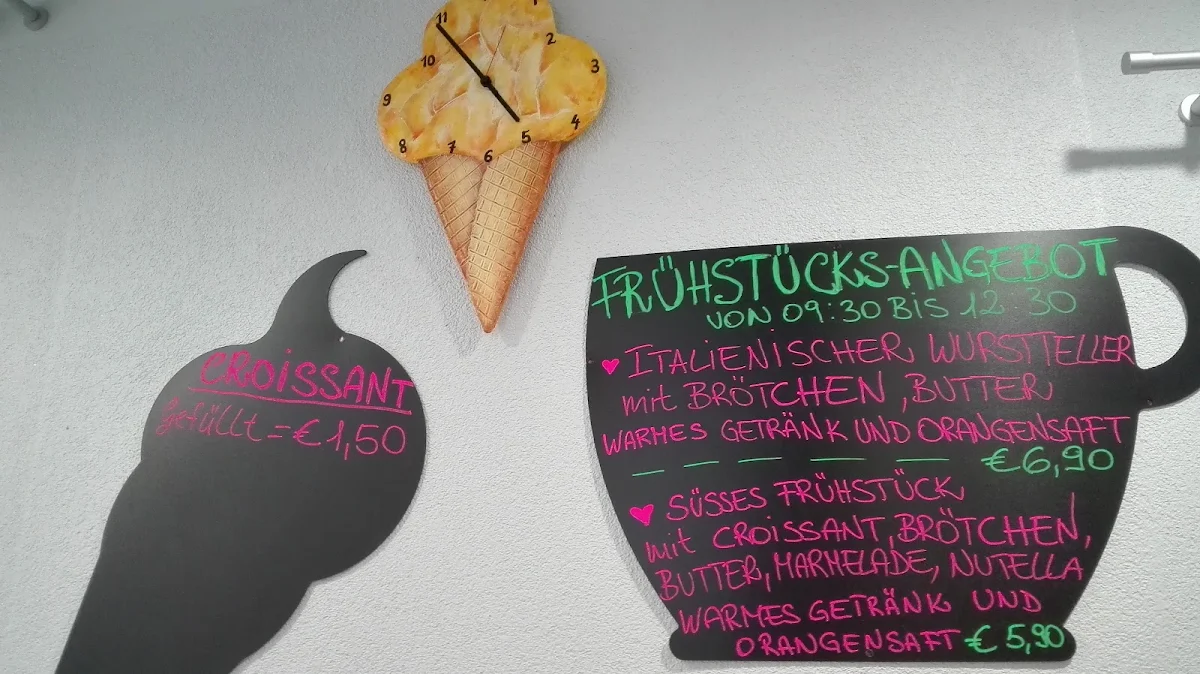 11
1
10
2
9
3
8
4
7
5
6
CROISSANT
gefüllt = € 1,50
FRÜHSTÜCKS-ANGEBOT
VON 09:30 BIS 12 30
♥ ITALIENISCHER WURSTTELLER
mit BRÖTCHEN, BUTTER
WARMES GETRÄNK UND ORANGENSAFT
€ 6,90
♥ SÜSSES FRÜHSTÜCK
mit CROISSANT, BRÖTCHEN,
BUTTER, MARMELADE, NUTELLA
WARMES GETRÄNK UND
ORANGENSAFT € 5,90